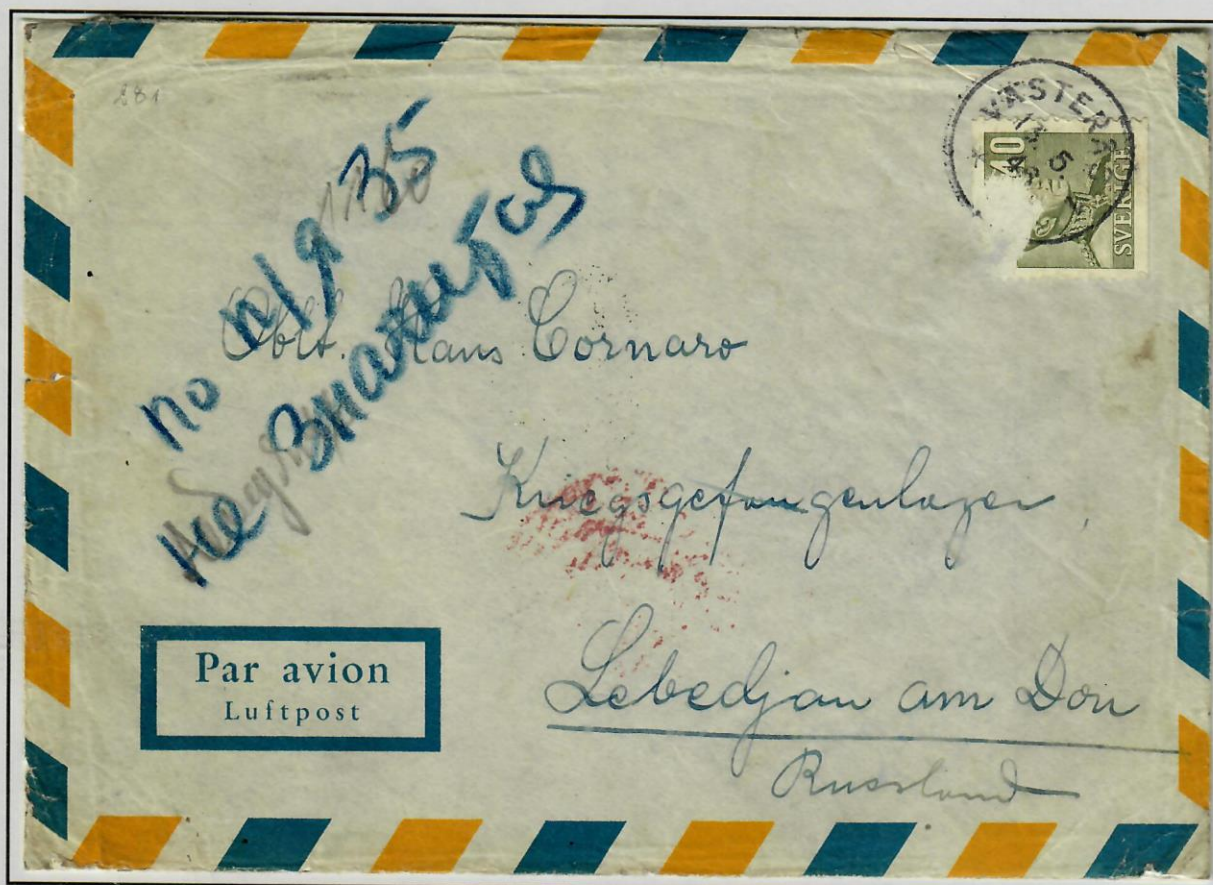 281
VÄSTERÅS
13 5
40
SVERIGE
по п/я 35
не значится
Oblt. Hans Cornaro
Kriegsgefangenlager,
Lebedjan am Don
Russland
Par avion
Luftpost